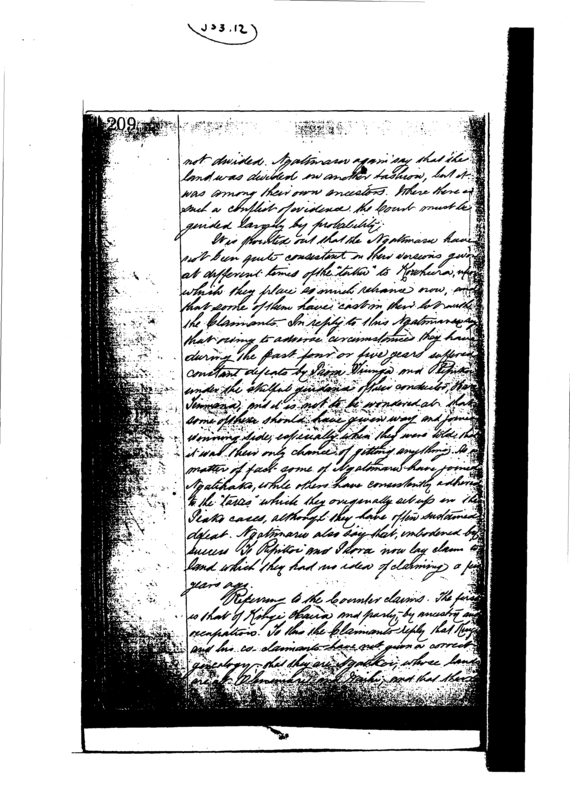 J53.12
209
not divided. Ngatimaru again say that the
land was divided in another fashion, but it
was among their own ancestors. Where there is
such a conflict of evidence the Court must be
guided largely by probability.
It is pointed out that the Ngatimaru have
not been quite consistent in their versions given
at different times of the "take" to
which they place so much reliance now, and
that some of them have cast in their lot with
the Claimants. In reply to this Ngatimaru say
that owing to adverse circumstances they have
during the past four or five years suffered
constant defeats by and
under the skilful guidance of their conductor,
and it is not to be wondered at that
some of these should have given way and joined
winning side, especially when they were told that
it was their only chance of getting anything. As a
matter of fact some of Ngatimaru have joined
while others have consistently adhered
to the "takes" which they originally set up in the
Piako cases, although they have often sustained
defeat. Ngatimaru also say that, emboldened by
success and now lay claim to
land which they had no idea of claiming a few
years ago.
Referring to the Counter claims. The first
is that of and party, by ancestry and
occupation. To this the Claimants reply that
and his co. claimants have not given a correct
genealogy - that they are whose lands
and that